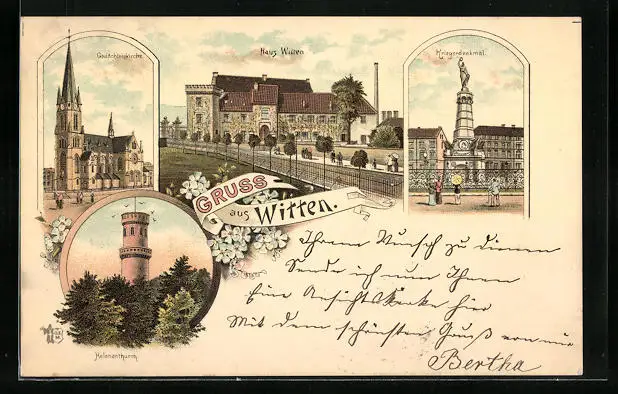 Gedächtniskirche
Haus Witten
Kriegerdenkmal.
GRUSS
aus Witten.
Helenenthurm
Ihrem Wunsch zu dienen
Sende ich nun Ihnen
Eine Ansichtskarte hier
Mit dem schönsten Gruß von mir
Bertha